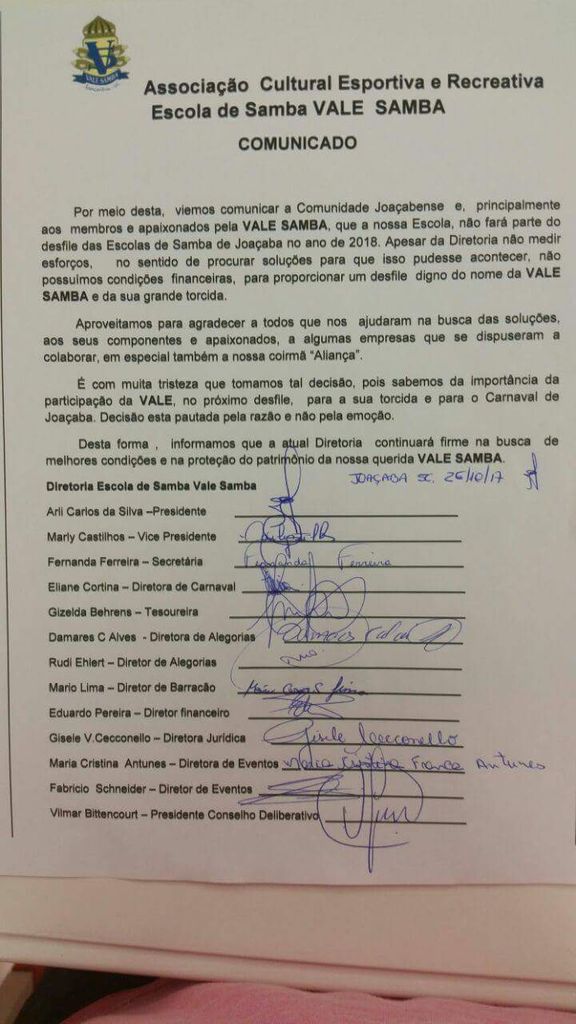 VALE SAMBA
Associação Cultural Esportiva e Recreativa
Escola de Samba VALE SAMBA
COMUNICADO
Por meio desta, viemos comunicar a Comunidade Joaçabense e, principalmente
aos membros e apaixonados pela VALE SAMBA, que a nossa Escola, não fará parte do
desfile das Escolas de Samba de Joaçaba no ano de 2018. Apesar da Diretoria não medir
esforços, no sentido de procurar soluções para que isso pudesse acontecer, não
possuímos condições financeiras, para proporcionar um desfile digno do nome da VALE
SAMBA e da sua grande torcida.
Aproveitamos para agradecer a todos que nos ajudaram na busca das soluções,
aos seus componentes e apaixonados, a algumas empresas que se dispuseram a
colaborar, em especial também a nossa coirmã “Aliança”.
É com muita tristeza que tomamos tal decisão, pois sabemos da importância da
participação da VALE, no próximo desfile, para a sua torcida e para o Carnaval de
Joaçaba. Decisão esta pautada pela razão e não pela emoção.
Desta forma , informamos que a atual Diretoria continuará firme na busca de
melhores condições e na proteção do patrimônio da nossa querida VALE SAMBA.
JOAÇABA SC. 26/10/17
Diretoria Escola de Samba Vale Samba
Arli Carlos da Silva –Presidente
Marly Castilhos – Vice Presidente
Fernanda Ferreira – Secretária Fernanda Ferreira
Eliane Cortina – Diretora de Carnaval
Gizelda Behrens – Tesoureira
Damares C Alves - Diretora de Alegorias
Rudi Ehlert – Diretor de Alegorias
Mario Lima – Diretor de Barracão
Eduardo Pereira – Diretor financeiro
Gisele V.Cecconello – Diretora Jurídica Gisele Cecconello
Maria Cristina Antunes – Diretora de Eventos Maria Cristina Franca Antunes
Fabricio Schneider – Diretor de Eventos
Vilmar Bittencourt – Presidente Conselho Deliberativo